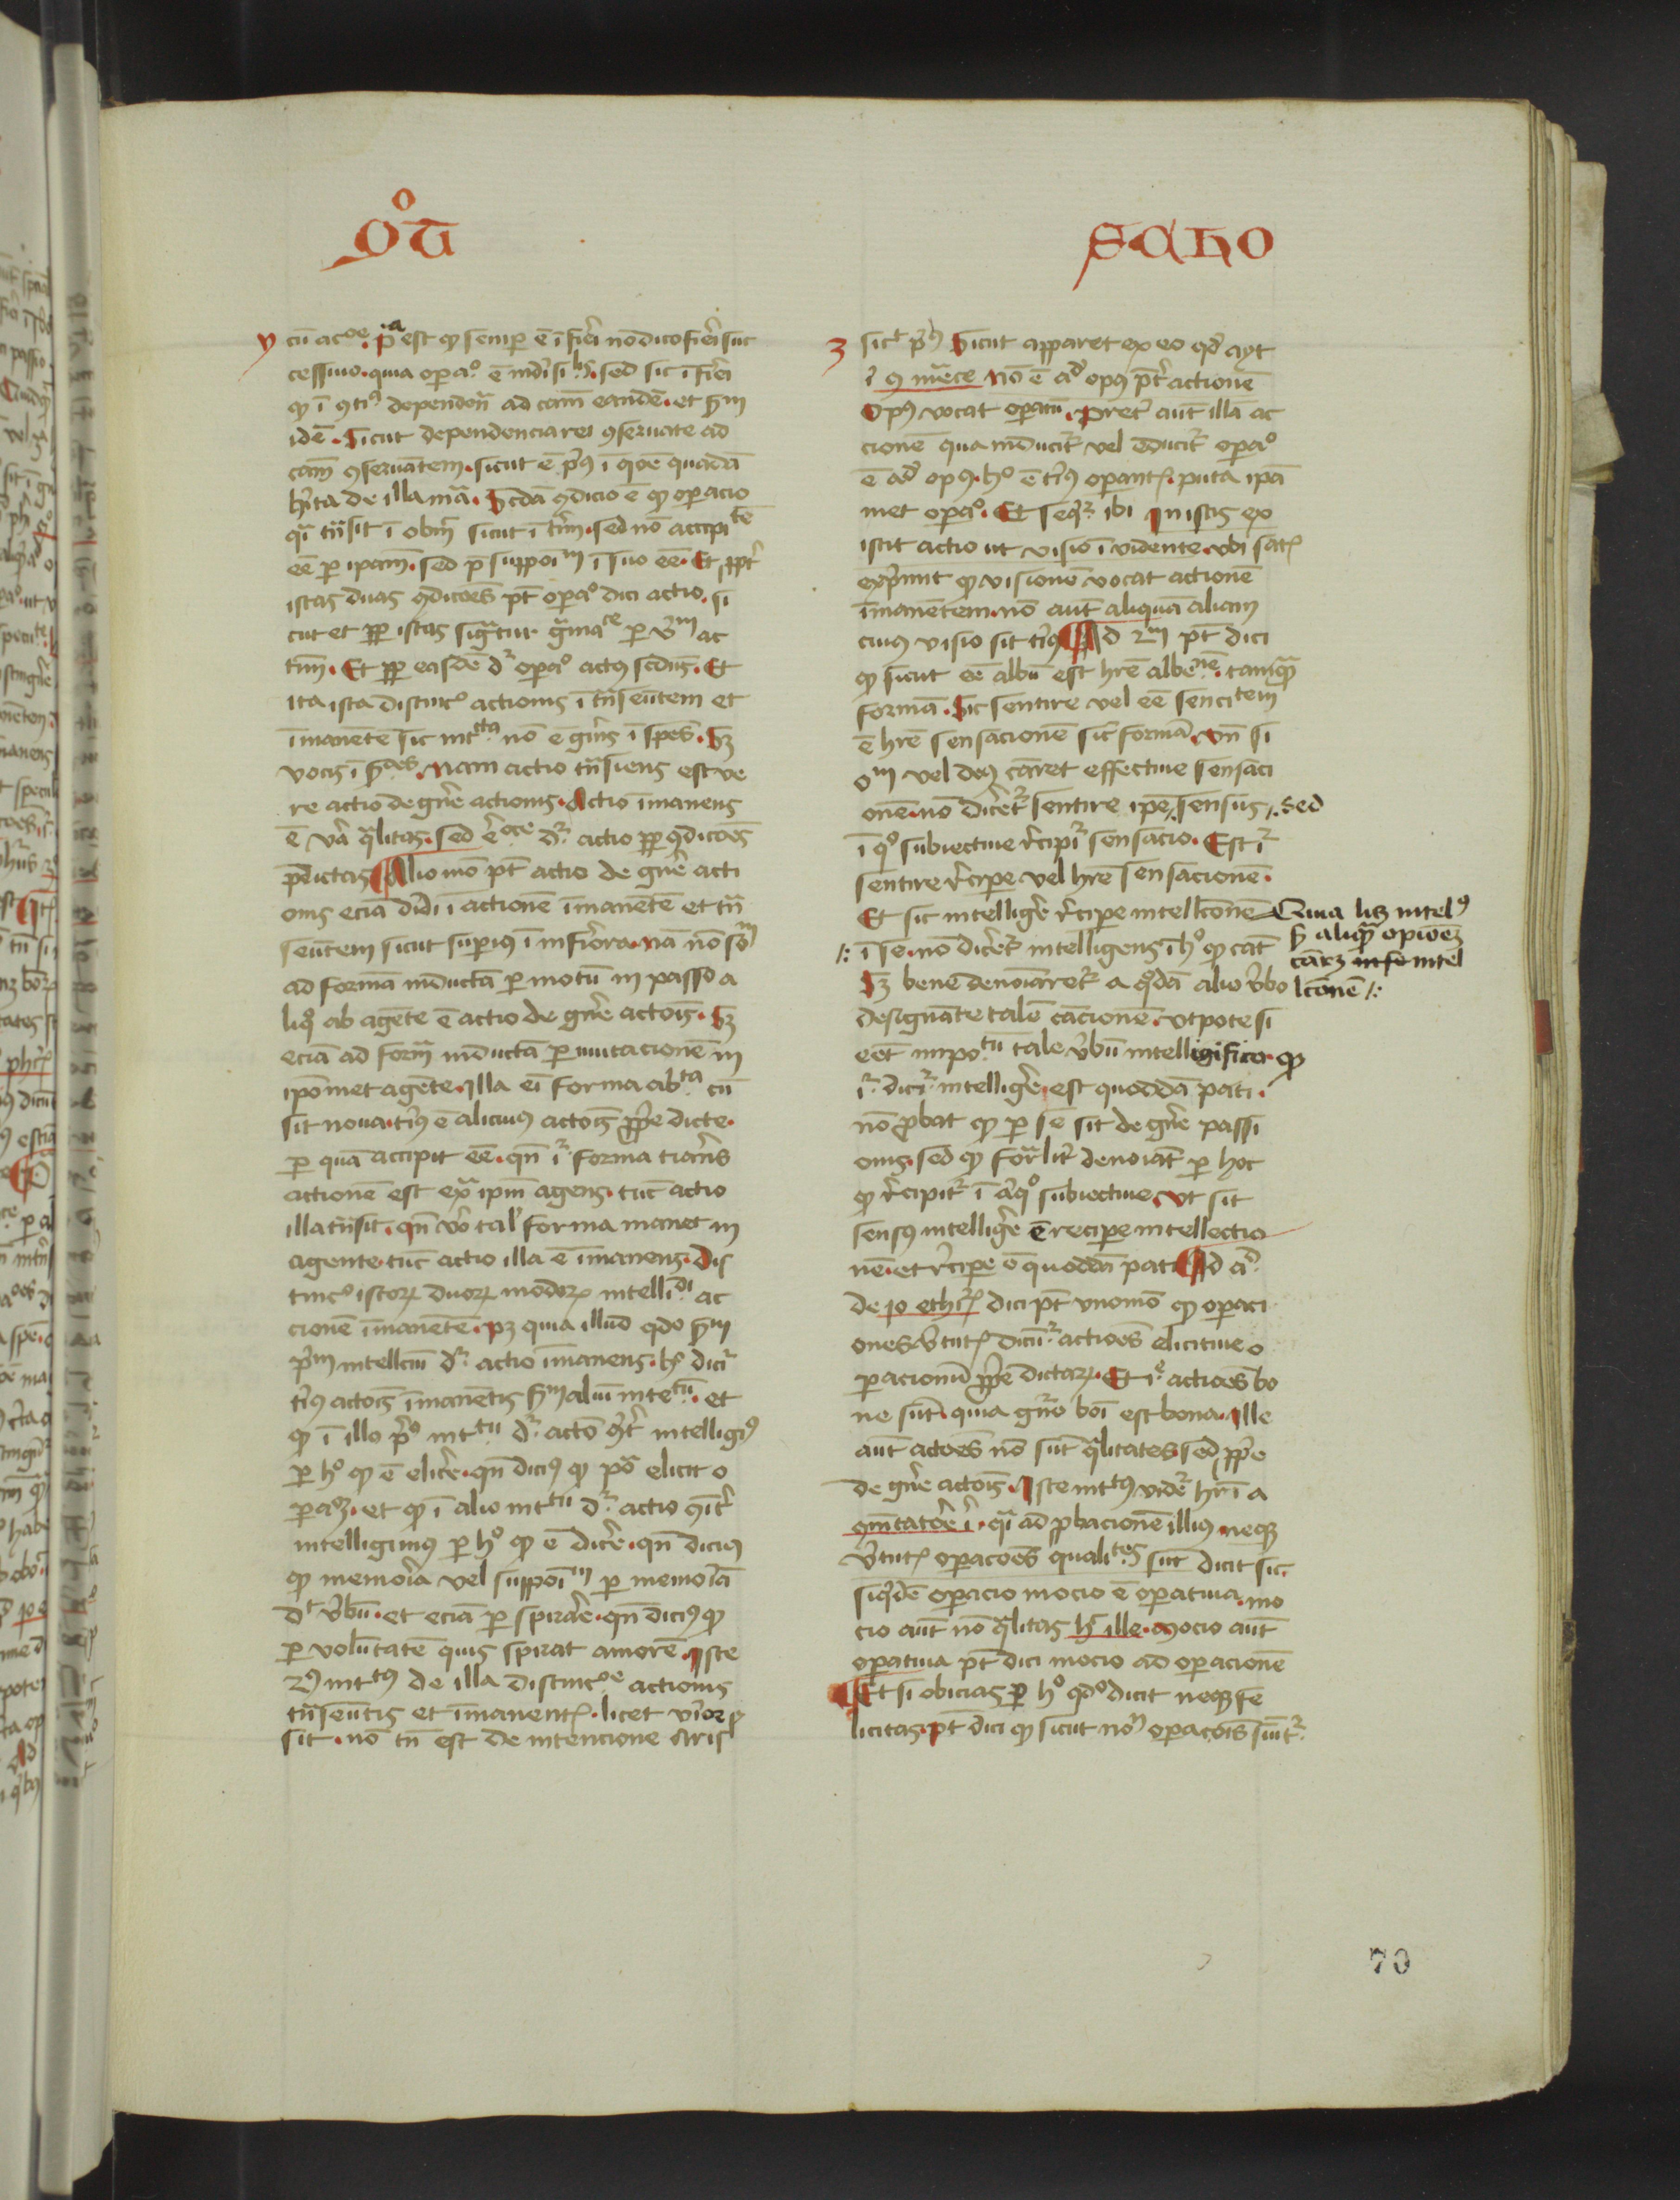 qͦ u̅
scaho
y cu̅ ac͠oe. p̅a est ꝙ semꝑ e̅ i̅ fieri no̅ dico fieri suc
cessiuo. quia oꝑaͦ. e̅ indiui sil̅is. sed sic i̅ fieri
ꝙ i̅ ꝯtiꝰ dependen̅ ad cam̅ eande̅. et s̅m
ide̅. Sicut dependencia rei ꝯseruate ad
cam̅ ꝯserua̅tem. sicut e̅ p̅ꝰ i̅ qo̅e quada̅
h̅ita de illa mā. Scda̅ ꝯdicio e̅ ꝙ oꝑacio
q̅i tn̅sit i̅ obm̅ sicut i̅ t̅im̅. sed no̅ accipite̅
ee̅ ꝑ ipam̅. sed p̅suppoim i̅ suo ee̅. Et ꝓpt̅
istas duas ꝯdico̅es p̅t oꝑaͦ dici actio. si
cut et ꝓꝑ istas sig̅tur g̅mace ꝑ v̅m ac
tiu̅. Et ꝓꝑ easde̅ dr̅ oꝑaͦ actꝰ scdu̅s. Et
ita ista distincͦ actionis i̅ tn̅seu̅tem et
i̅mane̅te̅ sic intcta no̅ e̅ gn̅is i̅ spe̅s. Sꝫ
vocis i̅ s̅aes. Nam actio tn̅siens est ve
re actio de gn̅e actionis. Actio i̅manens
e̅ va̅ q̅litas. sed e̅oce dr̅ actio ꝓꝑ ꝯdico̅es
p̅dictas Alio mo̅ p̅t actio de gn̅e acti
onis ecia̅ diui̅ i̅ actione̅ i̅mane̅te̅ et tn̅
seu̅tem sicut suꝑius i̅ inf̅iora. na̅ no̅ so̅m
ad forma̅ inducta̅ ꝑ motu̅ in passo a
liqͦ ab age̅te e̅ actio de gn̅e acto̅is. Sꝫ
ecia̅ ad form̅a inducta̅ ꝑ mutacione̅ in
ipo̅met age̅te. Illa ei̅ forma abta cu̅
sit noua. t̅iꝰ e̅ alicuius acto̅is ꝓp̅e dicte.
ꝑ qua̅ accipit ee̅. qn̅ i̅r forma t̅ia̅ns
actione̅ est ext̅ ipm̅ agens. tu̅c actio
illa tn̅sit. qn̅ vo̅ tal̅ forma manet in
agente. tu̅c actio illa e̅ i̅manens. Dis
tincͦ istoꝝ duoꝝ modoꝝ intellidi ac
cione̅ i̅mane̅te̅. pꝫ quia illud qd̅o s̅m
p̅m intellcu̅ dr̅ actio i̅manens. hͦ dicit̅
t̅iꝰ acto̅is i̅mane̅tis s̅m aliu̅ intetu̅. et
ꝙ i̅ illo p̅ͦ inttu dr̅ acto̅ qt̅ intelligiꝰ
ꝑ hͦ ꝙ e̅ elic̅e. qn̅ diciꝰ ꝙ po̅a elicit o
ꝑaͦꝫ. et ꝙ i̅ alio inttu dr̅ actio ꝗt̅
intelligimus ꝑ hͦ ꝙ e̅ dic̅e. qn̅ diciꝰ
ꝙ memo̅ia vel suppoi̅m ꝑ memo̅ia̅
dt v̅bu̅. et ecia̅ ꝑ spira̅e. qn̅ diciꝰ ꝙ
ꝑ volu̅tate̅ quis spirat amore̅. Iste
2ꝰ inttꝰ de illa distincͦe actionis
tn̅seu̅tis et i̅manentꝭ. licet v̅ior
sit. no̅ tn̅ est de intencione Aris
3 sict p̅ꝫ Sicut apparet ex eo qd̅ ayt
i̅ ꝯ m̅ece No̅ e̅ ad̅ opꝰ p̅t̅ actione̅
Opꝰ vocat oꝑatu̅. Pret̅ aut̅ illa̅ ac
cione̅ qua inducit̅ vel educit̅ oꝑaͦ
e̅ ad̅ opꝰ. hͦ e̅ t̅iꝰ oꝑantꝭ. puta ipa̅
met oꝑaͦ. Et seqr̅ ibi In istis ex
istit actio ut visio i̅ vidente. vbi satꝭ
exp̅mit ꝙ visione̅ vocat actione̅
i̅mane̅tem. no̅ aut̅ aliqua̅ aliam
cuius visio sit t̅iꝰ Ad 2m p̅t dici
ꝙ sicut ee̅ albu̅ est hr̅e albene̅. tamq̅
forma̅. Sic sentire vel ee̅ sencitem
e̅ hr̅e sensacione̅ sic̅ forma̅. Vn̅ si
om vel deꝰ ca̅ret effective sensaci
one̅. no̅ dic̅et̅ sentire ipe⹎ sensus ⹎ sed
i̅ qͦ subiective r̅cipit̅ sensacio. Est i̅r
sentire r̅ciꝑe vel hr̅e sensacione̅.
Et sic intellig̅e r̅ciꝑe intellcone̅ Quia licꝫ intelꝰ
s̅ aliq̅ opio̅eꝫ
ca̅rꝫ in se intel
lcone̅ /:
/: i̅ se. no̅ dic̅et̅ intelligens i̅ hͦ ꝙ ca̅t
Sꝫ bene̅ deno̅iaret̅ a qͦda̅ alio v̅bo
designa̅te tale̅ ca̅cione̅. vtpote si
eet̅ impotu̅ tale v̅bu̅ intelligifico. ꝙ
i̅r dicit̅ intellig̅e. est quodda̅ pati.
no̅ ꝓbat ꝙ ꝑ se̅ sit de gn̅e passi
onis. sed ꝙ for̅lit̅ deno̅iat̅ ꝑ hoc
ꝙ r̅cipit̅ i̅ a̅qͦ subiective. vt sit
sensꝰ intellig̅e e̅ reciꝑe intellectio
ne̅. et r̅ciꝑe e̅ quodda̅ pati Ad a̅
de 10 ethꝝ dici p̅t vnomo̅ ꝙ oꝑaci
ones v̅tutꝭ dicu̅t̅ actio̅es elicitiue o
ꝑacionu̅ ꝓp̅e dictaꝝ. Et i̅e actio̅es bo
ne su̅t. quia gn̅o boi̅ est bona. Ille
aut̅ acto̅es no̅ su̅t q̅litates. sed ꝓp̅e
de gn̅e acto̅is. Iste inttꝰ vide̅ hr̅i a
ꝯm̅tato̅e i̅. q̅i ad ꝓbacione̅ illiꝰ. neqꝫ
v̅tutꝭ oꝑaco̅es qualites su̅t dicit sic.
siq̅de̅ oꝑacio mocio e̅ oꝑatiua. mo
cio aut̅ no̅ q̅litas h̅ ille. Mocio aut̅
oꝑatiua p̅t dici mocio ad oꝑacione̅
Et si obicias ꝑ hͦ qd̅ͦ dicit neqꝫ fe
licitas. p̅t dici ꝙ sicut noꝫ oꝑaco̅is su̅it̅
70